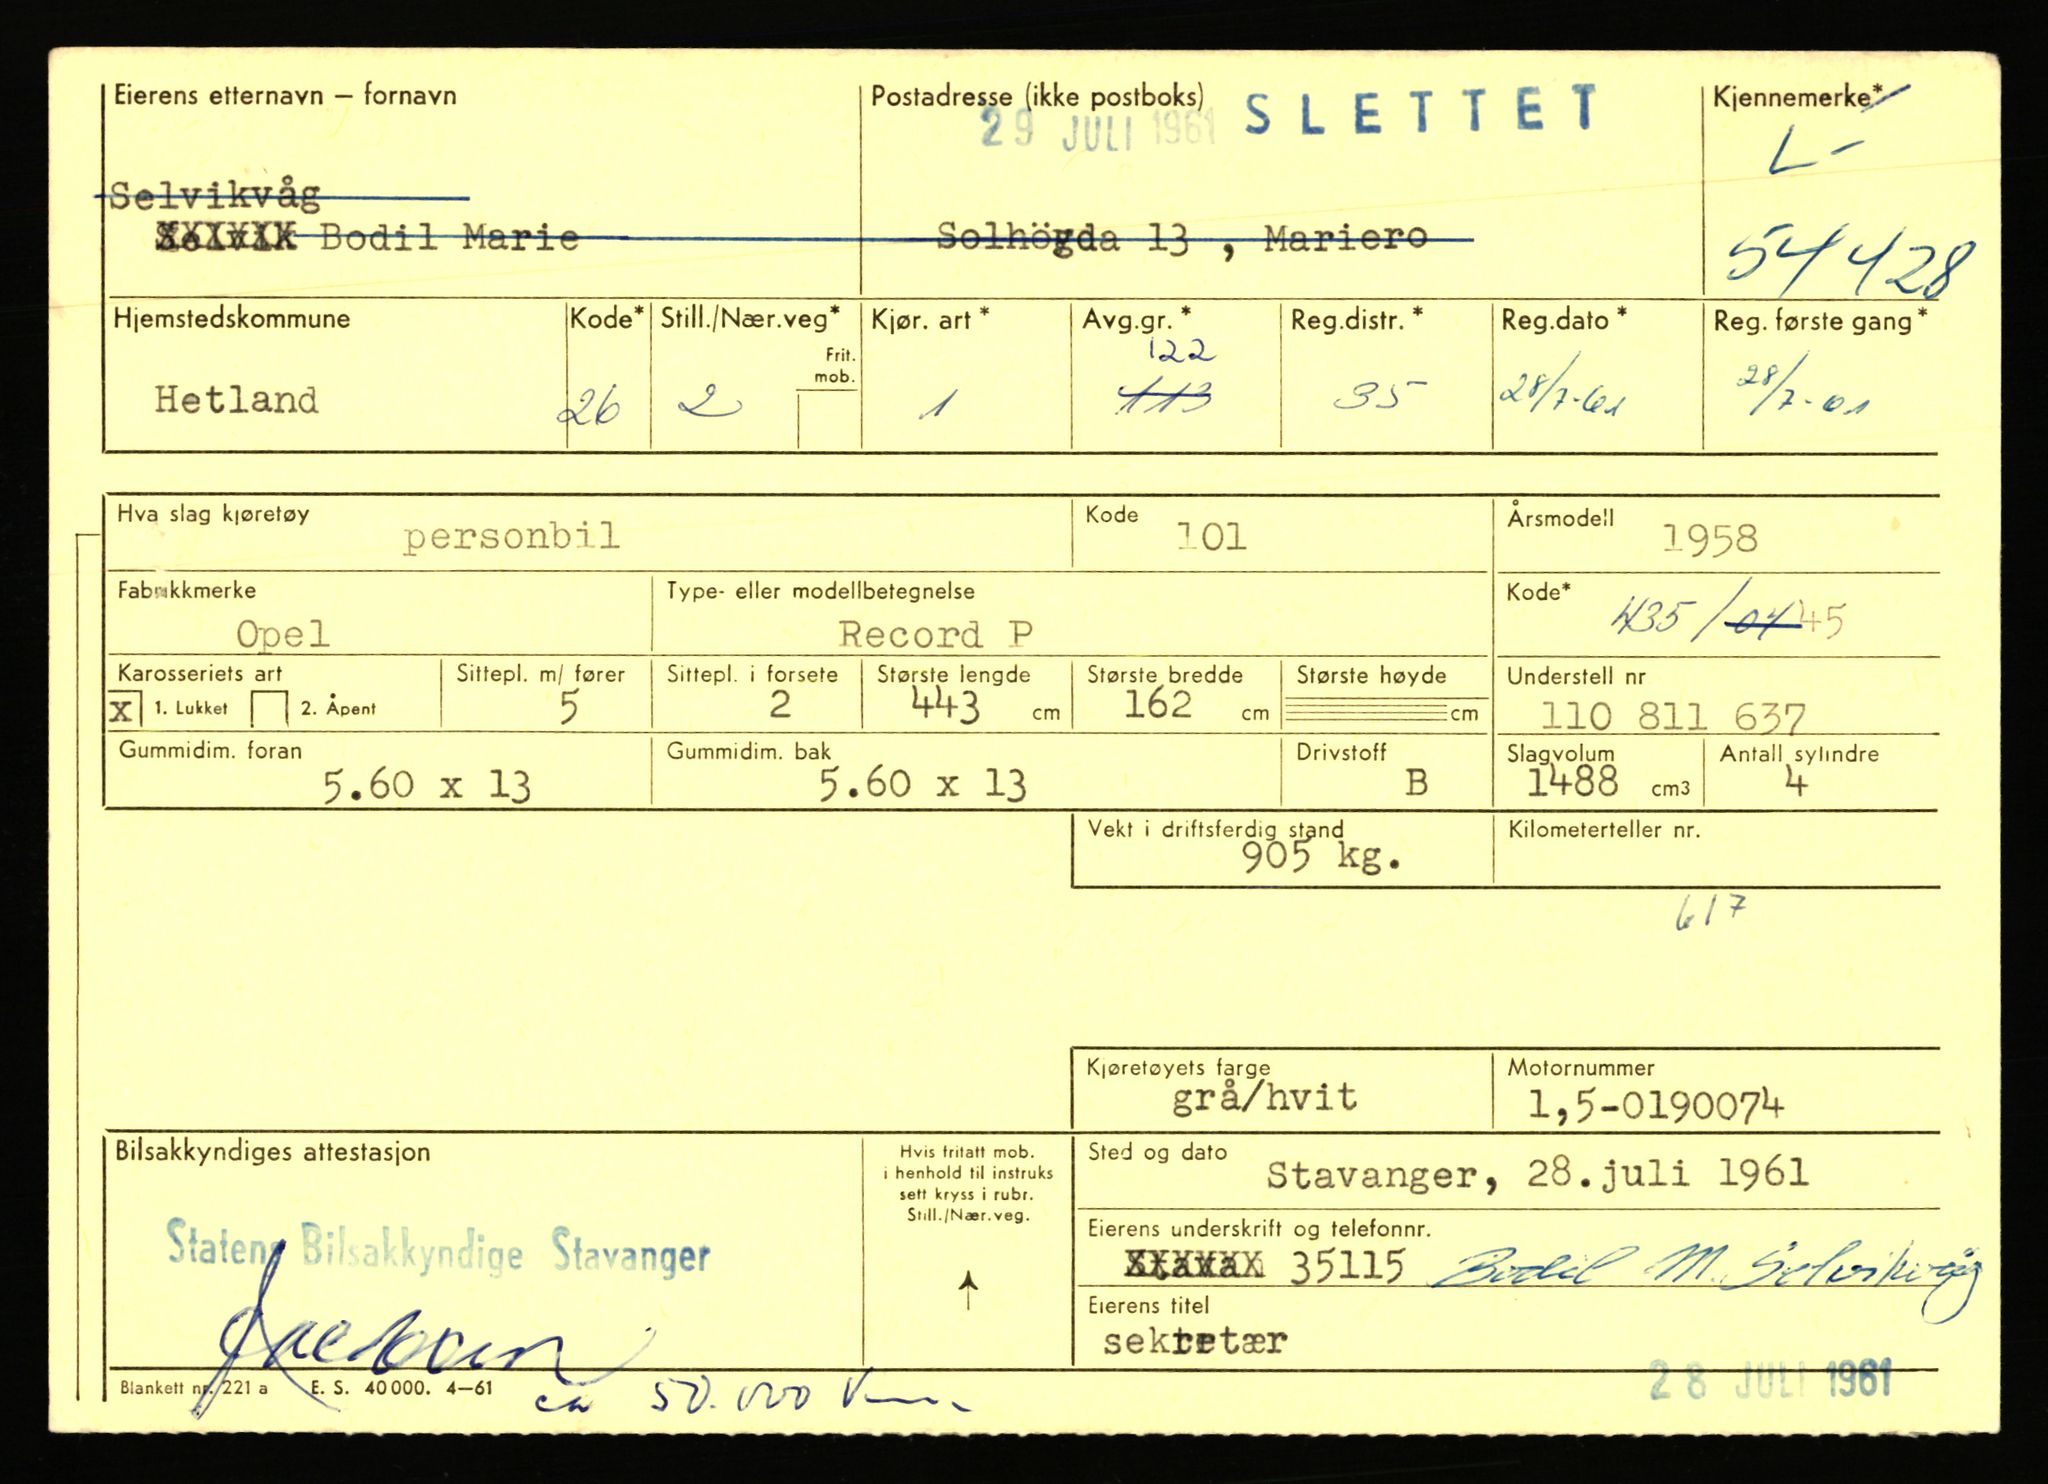 Eierens etternavn – fornavn
Postadresse (ikke postboks)
29 JULI 1961 SLETTET
Kjennemerke*
L-
54428
Selvikvåg
Bodil Marie
Solhögda 13 , Mariero
Hjemstedskommune
Hetland
Kode*
26
Still./Nær.veg*
Frit.
mob.
2
Kjør. art *
1
Avg.gr. *
122
113
Reg.distr. *
35
Reg.dato *
28/7-61
Reg. første gang *
28/7-61
Hva slag kjøretøy
personbil
Kode
101
Årsmodell
1958
Fabrikkmerke
Opel
Type- eller modellbetegnelse
Record P
Kode*
435/04 45
Karosseriets art
x 1. Lukket 2. Åpent
Sittepl. m/ fører
5
Sittepl. i forsete
2
Største lengde
443 cm
Største bredde
162 cm
Største høyde
cm
Understell nr
110 811 637
Gummidim. foran
5.60 x 13
Gummidim. bak
5.60 x 13
Drivstoff
B
Slagvolum
1488 cm3
Antall sylindre
4
Vekt i driftsferdig stand
905 kg.
Kilometerteller nr.
617
Kjøretøyets farge
grå/hvit
Motornummer
1,5-0190074
Bilsakkyndiges attestasjon
Statens Bilsakkyndige Stavanger
Hvis fritatt mob.
i henhold til instruks
sett kryss i rubr.
Still./Nær.veg.
Sted og dato
Stavanger, 28.juli 1961
Eierens underskrift og telefonnr.
35115 Bodil M. Selvikvåg
Eierens titel
sekretær
28 JULI 1961
Blankett nr. 221 a E. S. 40000. 4–61
ca 50.000 km.